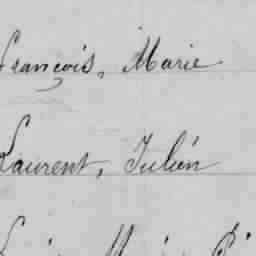 François, Marie
Laurent, Julién